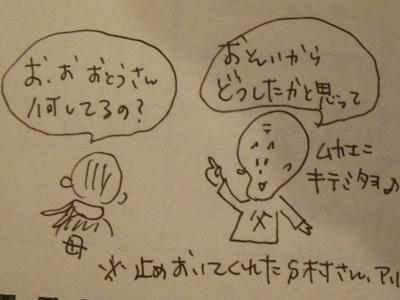 お、お おとうさん
何してるの?
おそいから
どうしたかと思って
ムカエニ
キテミタヨ♪
父
母
※止めおいてくれた
村さん、アル